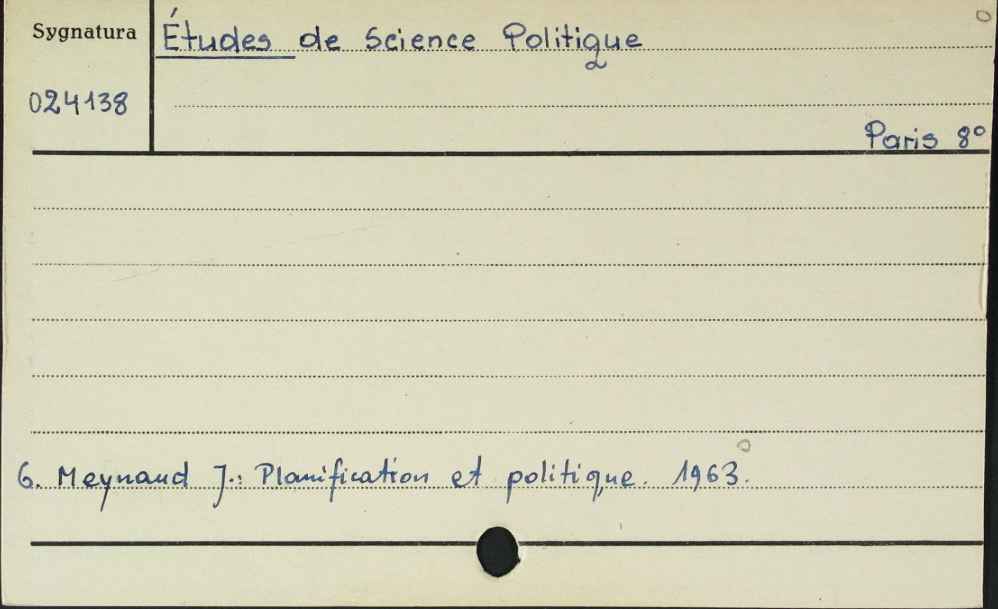 Sygnatura
Études de Science Politique
024138
Paris 8°
6. Meynaud J.: Planification et politique. 1963.